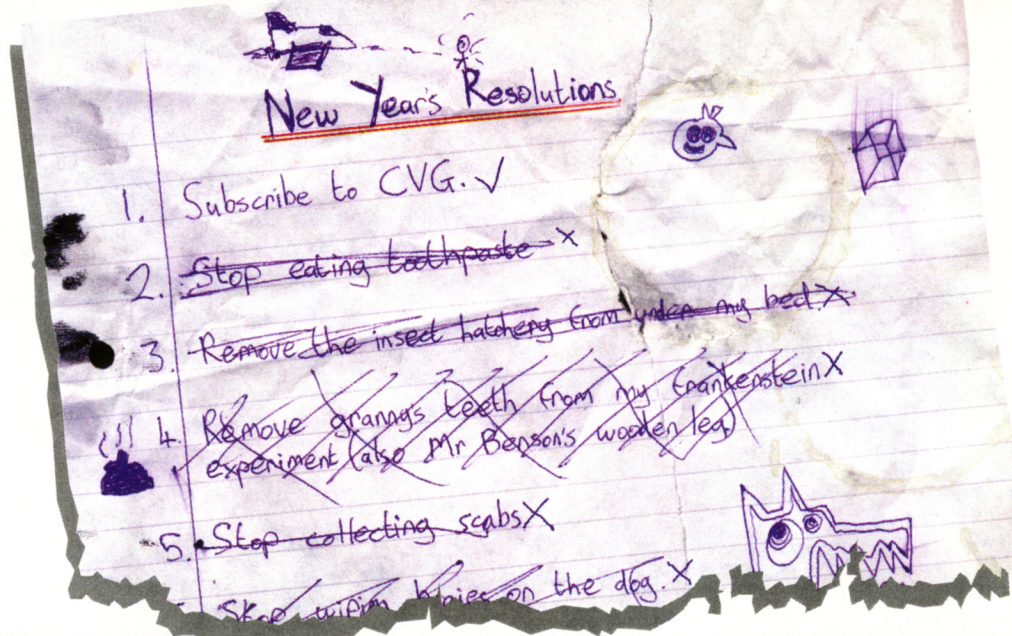 New Year's Resolutions
1. Subscribe to CVG. ✓
2. Stop eating toothpaste X
3. Remove the insect hatchery from under my bed. X
4. Remove grannys teeth from my frankenstein X
experiment (also Mr Benson's wooden leg)
5. Stop collecting scabs X
Stop wiping bogies on the dog. X